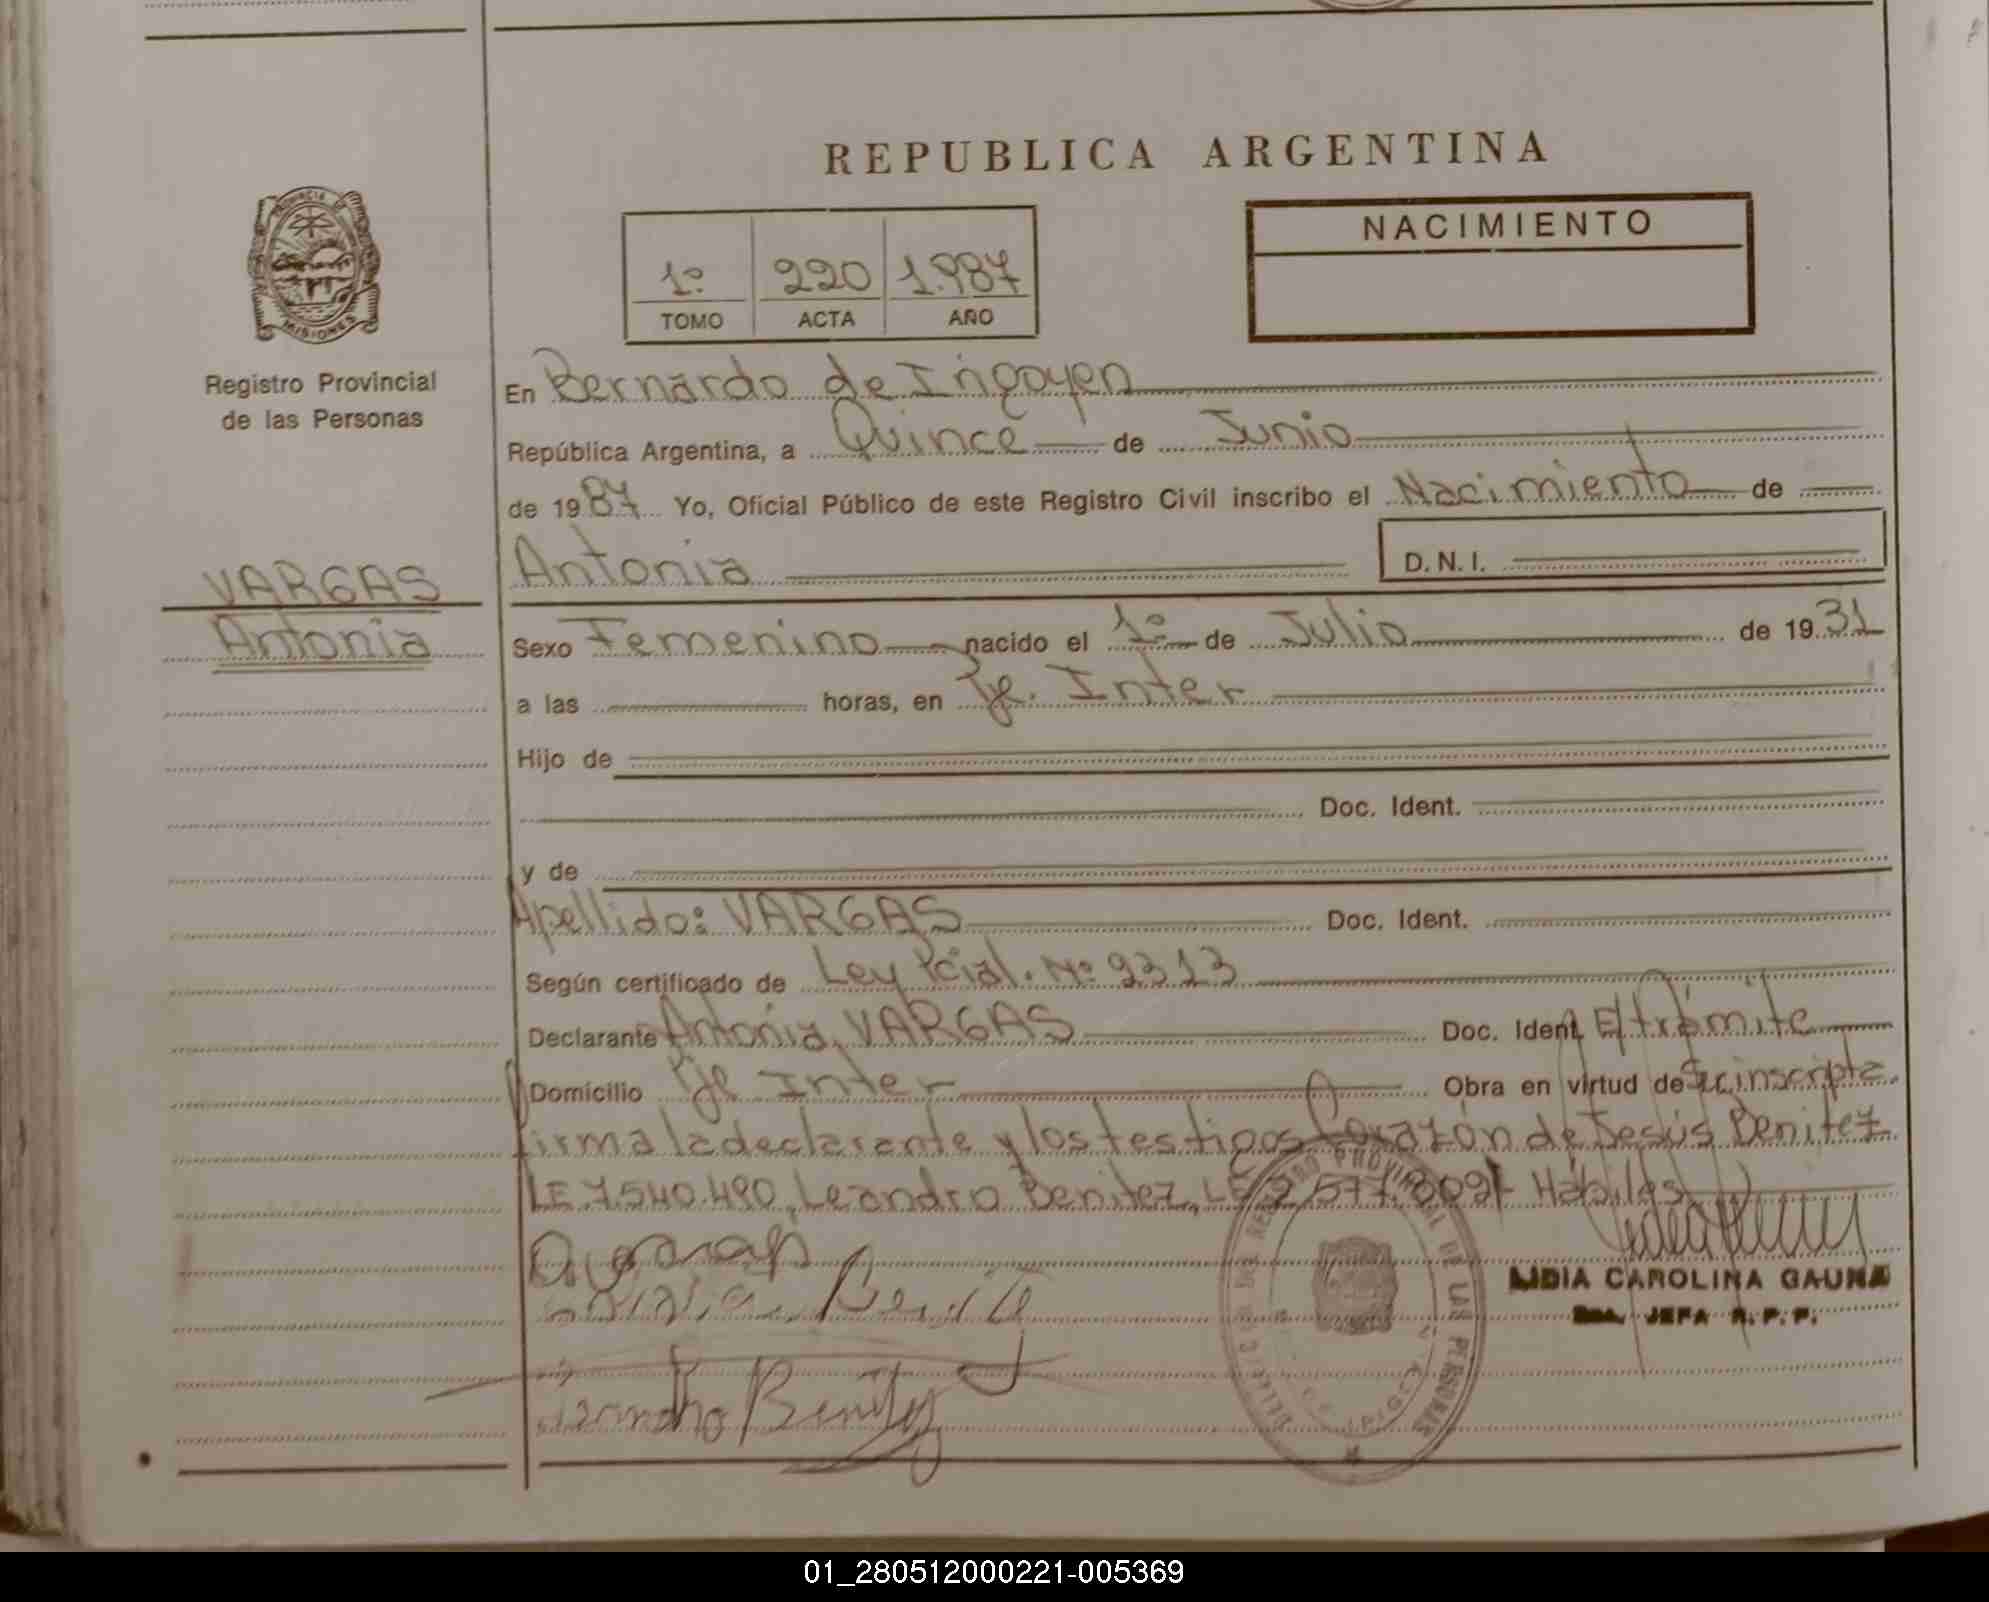 REPUBLICA ARGENTINA
PROVINCIA DE
MISIONES
Registro Provincial
de las Personas
1º 220 1.987
TOMO ACTA AÑO
NACIMIENTO
En Bernardo de Irigoyen
República Argentina, a Quince de Junio
de 1987 Yo, Oficial Público de este Registro Civil inscribo el Nacimiento de
Antonia D.N.I.
VARGAS
Antonia
Sexo Femenino nacido el 1º de Julio de 1931
a las horas, en Pje. Inter
Hijo de
Doc. Ident.
y de
Apellido: VARGAS Doc. Ident.
Según certificado de Ley Pcial. Nº 2313
Declarante Antonia VARGAS Doc. Ident. E/trámite
Domicilio Pje Inter Obra en virtud de Scinscripta
firma la declarante y los testigos Corazón de Jesús Benitez
LE 7.540.490, Leandro Benitez, LE Hábiles
Benitez
LIDIA CAROLINA GAUNA
JEFA R.P.P.
REGISTRO PROVINCIAL DE LAS PERSONAS
01_280512000221-005369